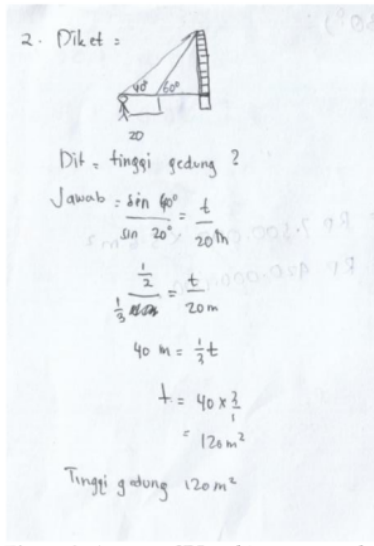 2. Diket =
40° 60°
20
Dit = tinggi gedung ?
Jawab = sin 40° / sin 20° = t / 20 m
1/2 / 1/3 = t / 20 m
40 m = 1/3 t
t = 40 x 3/1
= 120 m²
Tinggi gedung 120 m²